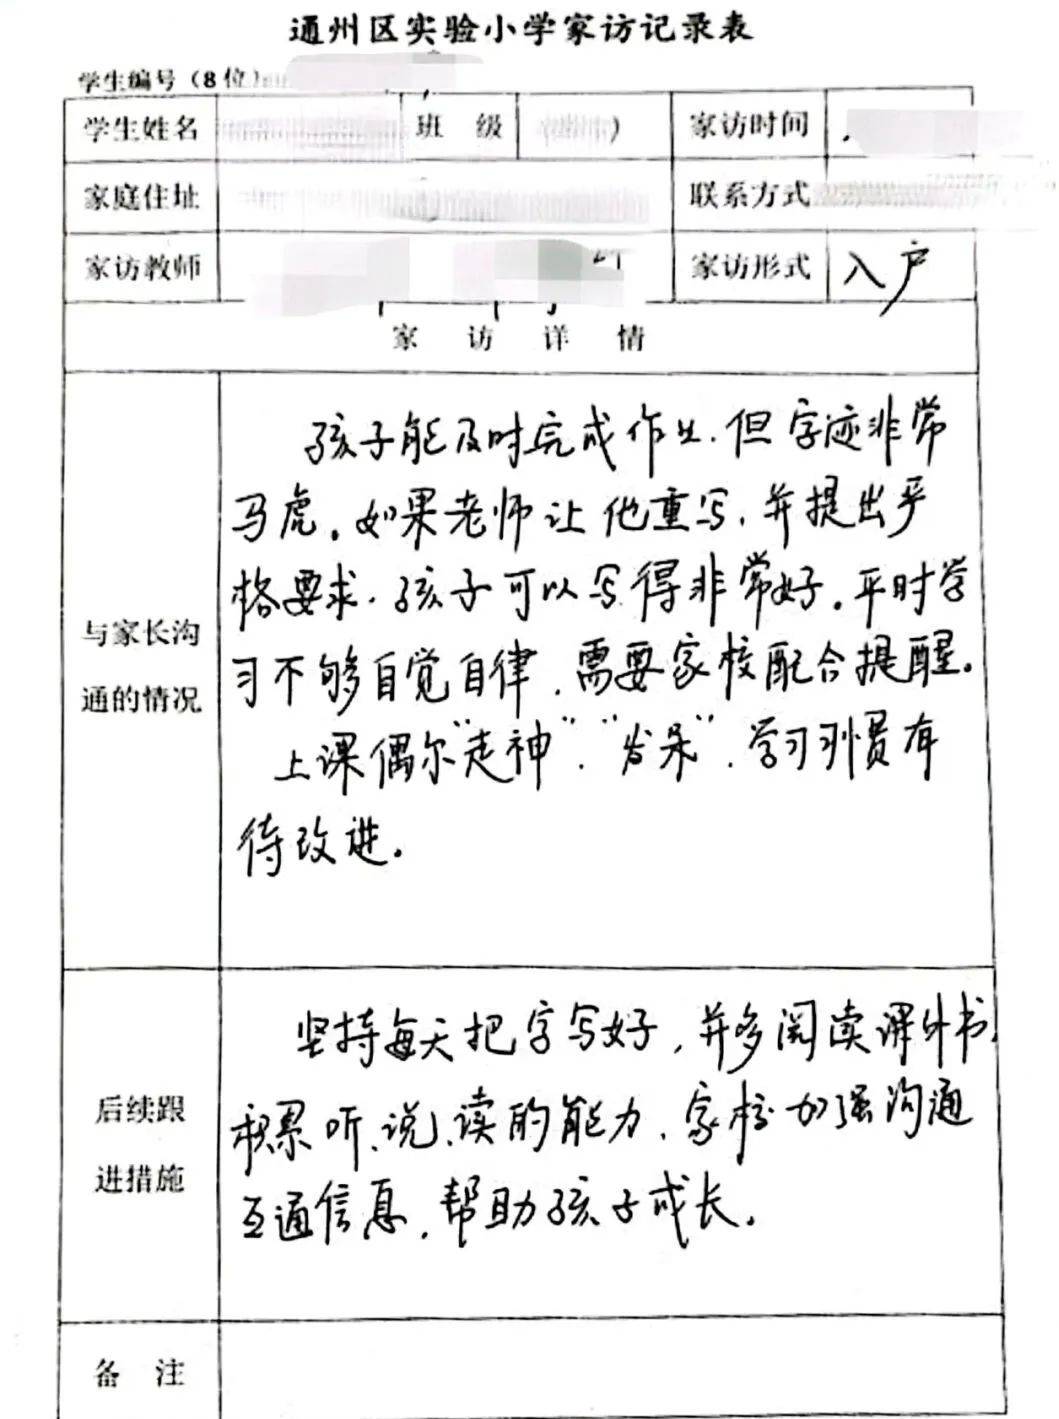 通州区实验小学家访记录表
学生编号（8位）
学生姓名 班 级 ） 家访时间
家庭住址 联系方式
家访教师 家访形式 入户
家 访 详 情
与家长沟
通的情况
孩子能及时完成作业.但字迹非常
马虎。如果老师让他重写,并提出严
格要求.孩子可以写得非常好。平时学
习不够自觉自律,需要家校配合提醒。
上课偶尔“走神”、“发呆”,学习习惯有
待改进。
后续跟
进措施
坚持每天把字写好,并多阅读课外书,
积累听、说、读的能力,家校加强沟通
互通信息,帮助孩子成长。
备 注